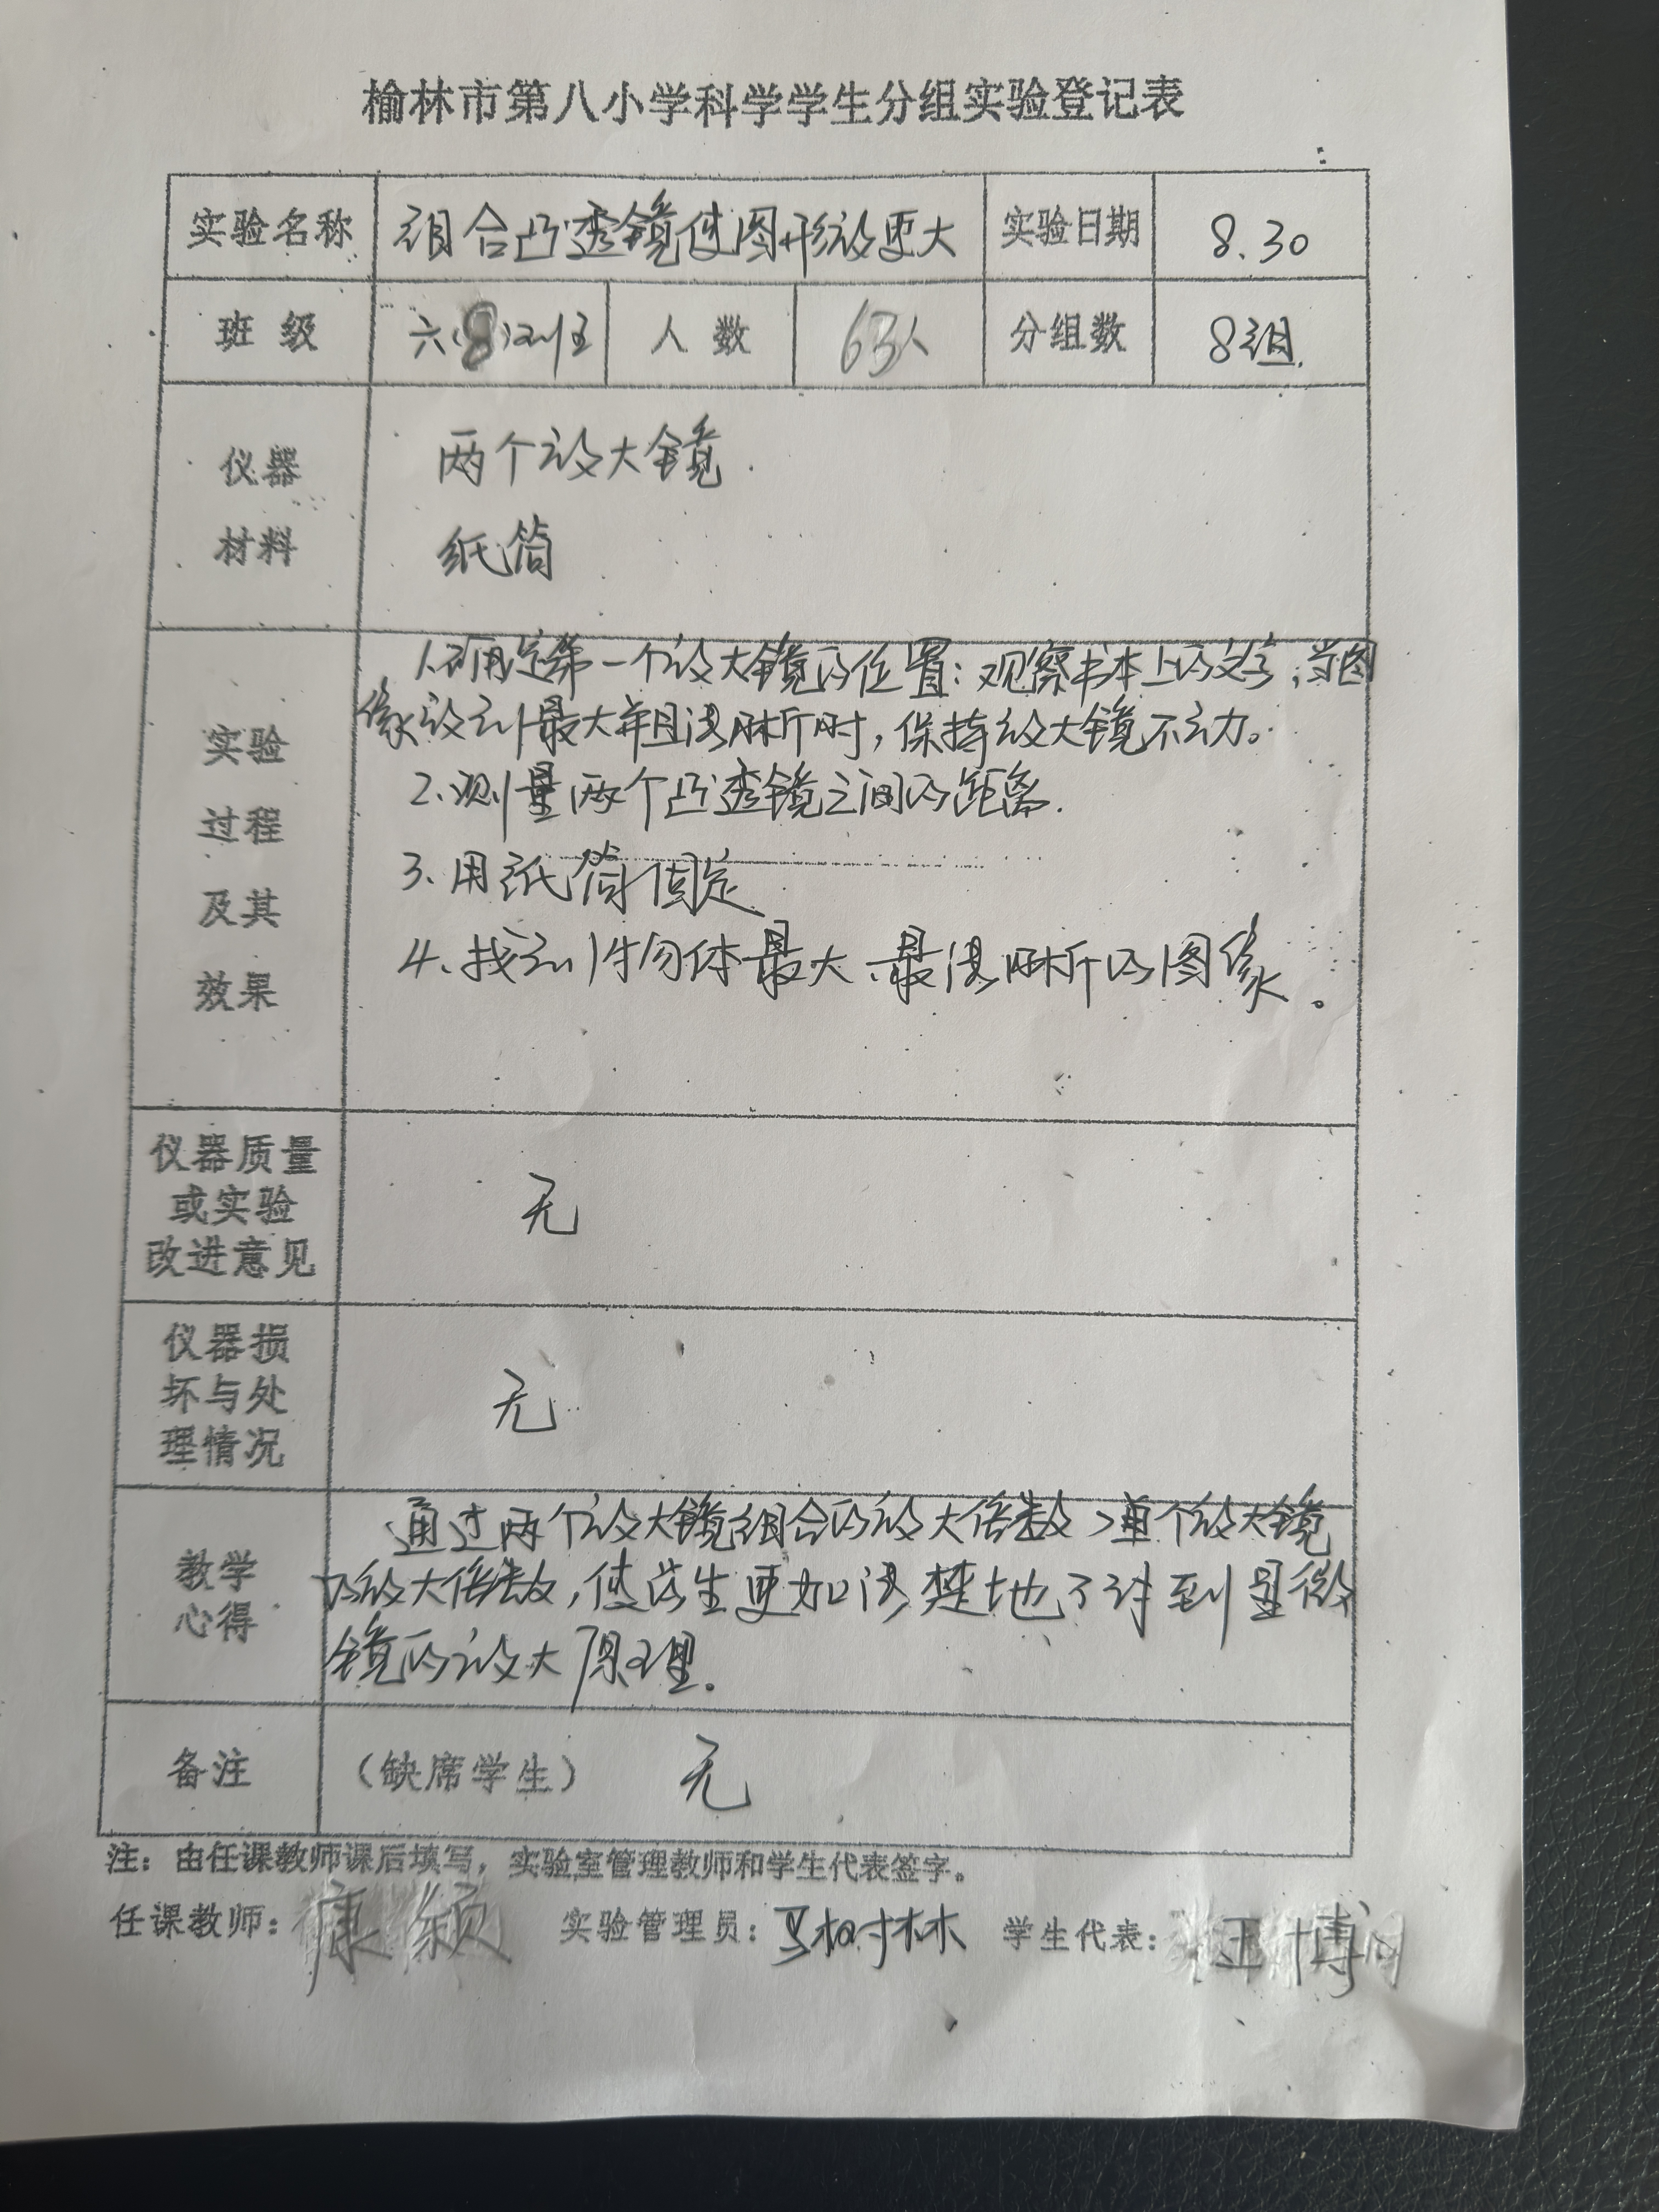 榆林市第八小学科学学生分组实验登记表
实验名称 组合凸透镜使图形放更大 实验日期 8.30
班 级 六(8)班 人 数 63人 分组数 8组.
仪器 两个放大镜.
材料 纸筒
1.确定第一个放大镜的位置:观察书本上的文字;当图
像放到最大并且清晰时,保持放大镜不动。
2.测量两个凸透镜之间的距离.
3.用纸筒固定
4.找到物体最大、最清晰的图像。
实验
过程
及其
效果
仪器质量
或实验
改进意见
无
仪器损
坏与处
理情况
无
教学
心得
通过两个放大镜组合的放大倍数>单个放大镜
的放大倍数,使学生更加清楚地了讲到显微
镜的放大原理.
备注 (缺席学生) 无
注:由任课教师课后填写,实验室管理教师和学生代表签字。
任课教师:康颖 实验管理员:马树林 学生代表: